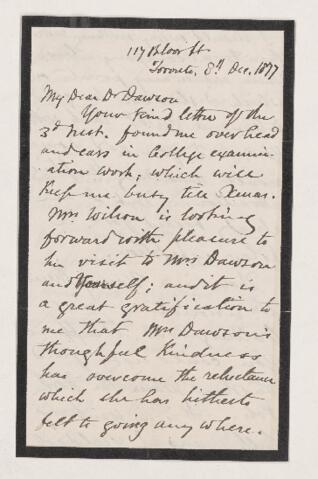 117 Bloor St
Toronto, 8th Dec. 1877
My Dear Dr Dawson
Your kind letter of the
3d inst. found me over head
and ears in College examin-
ation work; which will
keep me busy till Xmas.
Mrs Wilson is looking
forward with pleasure to
her visit to Mrs Dawson
and Yourself; and it is
a great gratification to
me that Mrs Dawson's
thoughtful kindness
has overcome the reluctance
which she has hitherto
felt to going any where.